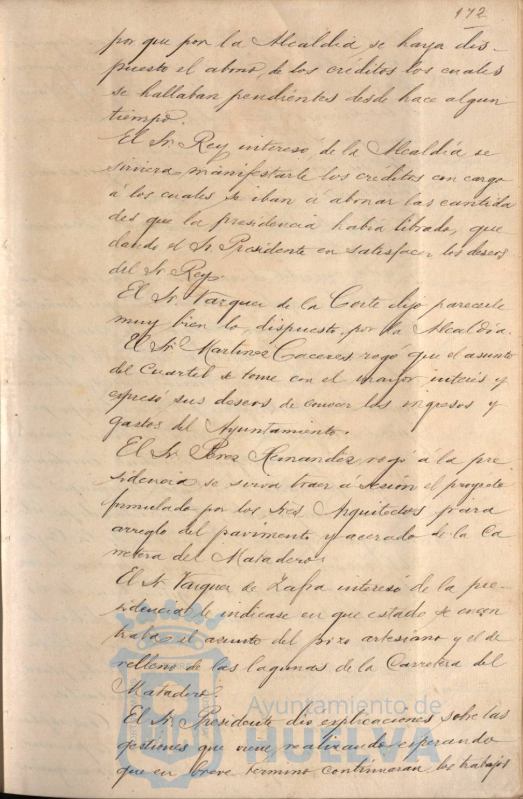 172
por que por la Alcaldia, se haya dis-
puesto el abono, de los créditos los cuales
se hallaban pendientes desde hace algun
tiempo.
El Sr. Rey, interesó, de la Alcaldia se
sirviera, manifestarle los creditos con cargo
á los cuales se iban á abonar las cantida
des que la presidencia habia librado, que
dando el Sr. Presidente en satisfacer los deseos
del Sr. Rey.
El Sr. Vazquez de la Corte dijo parecerle
muy bien lo, dispuesto, por la Alcaldia.
El Sr. Martinez Caceres rogó que el asunto
del Cuartel se tome con el mayor interés y
expresó sus deseos de conocer los ingresos y
gastos del Ayuntamiento.
El Sr. Perez Hernandez, rogó á la pre
sidencia se sirva traer a sesión el proyecto
formulado por los Sres Arquitectos para
arreglo del pavimento y acerado de la Ca
rretera del Matadero.
El Sr. Vazquez de Zafra interesó de la pre-
sidencia le indicase en que estado se encon
traba el asunto del pozo artesiano y el de
relleno de las lagunas de la Carretera del
Matadero.
El Sr. Presidente dio explicaciones sobre las
gestiones que viene realizando, esperando
que en breve termino continuaran los trabajos
Ayuntamiento de
HUELVA